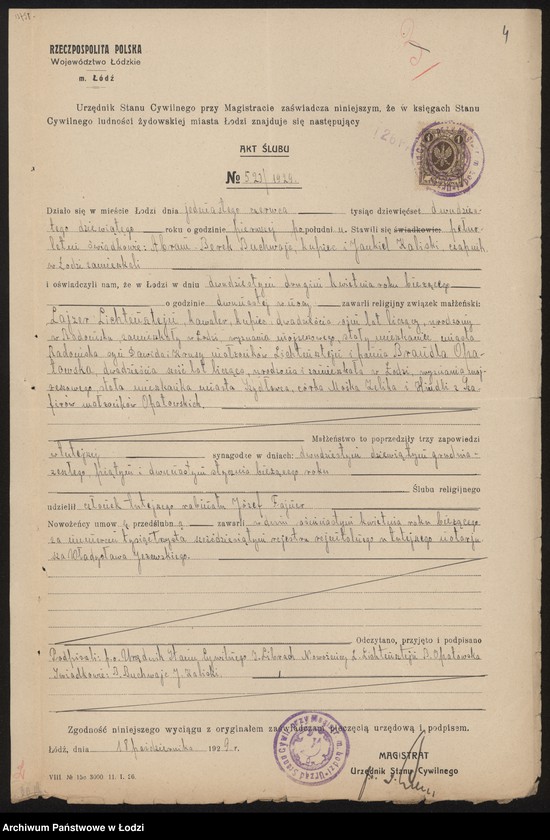 4
RZECZPOSPOLITA POLSKA
Województwo Łódzkie
m. Łódź
Urzędnik Stanu Cywilnego przy Magistracie zaświadcza niniejszym, że w księgach Stanu
Cywilnego ludności żydowskiej miasta Łodzi znajduje się następujący
AKT ŚLUBU
№ 523/1929.
Działo się w mieście Łodzi dnia jedenastego czerwca tysiąc dziewięćset dwudzies-
tego dziewiątego roku o godzinie pierwszej po południu. Stawili się świadkowie: pełno-
letni świadkowie: Abram Berek Buchwajc, kupiec i Jankiel Kaliski
w Łodzi zamieszkali
i oświadczyli nam, że w Łodzi w dniu dwudziestym drugim kwietnia roku bieżącego
o godzinie dwunastej w nocy zawarli religijny związek małżeński:
Lajzer Lichtensztejn kawaler, kupiec, dwadzieścia siedm lat liczący, urodzony
w Radomsku zamieszkały w Łodzi, wyznania mojżeszowego, stały mieszkaniec miasta
Radomska, syn Dawida małżonków Lichtensztejn i panna Brandla Opa-
towska, dwadzieścia sześć lat licząca, urodzona i zamieszkała w Łodzi, wyznania moj-
żeszowego stała mieszkanka miasta córka Moska Zelika i Hindli z
małżonków Opatowskich.
Małżeństwo to poprzedziły trzy zapowiedzi
w tutejszej synagodze w dniach: dwudziestym dziewiątym grudnia
zeszłego, piątym i dwunastym stycznia bieżącego roku
Ślubu religijnego
udzielił członek tutejszego rabinatu Józef Fajner
Nowożeńcy umowę przedślubną zawarli w dniu siedmnastym kwietnia roku bieżącego
za numerem tysiąc trzysta sześćdziesiątym rejenta w tutejszego notarju-
sza Władysława Jeżewskiego.
Odczytano, przyjęto i podpisano
Podpisali: p.o. Urzędnik Stanu Cywilnego Nowożeńcy L. Lichtensztejn B. Opatowska
Świadkowie: B. Buchwajc J. Kaliski.
Zgodność niniejszego wyciągu z oryginałem zaświadczam pieczęcią urzędową i podpisem.
Łódź, dnia 18 października 1929 r.
MAGISTRAT
Urzędnik Stanu Cywilnego
VIII № 15c 3000 11. 1. 16.
Archiwum Państwowe w Łodzi